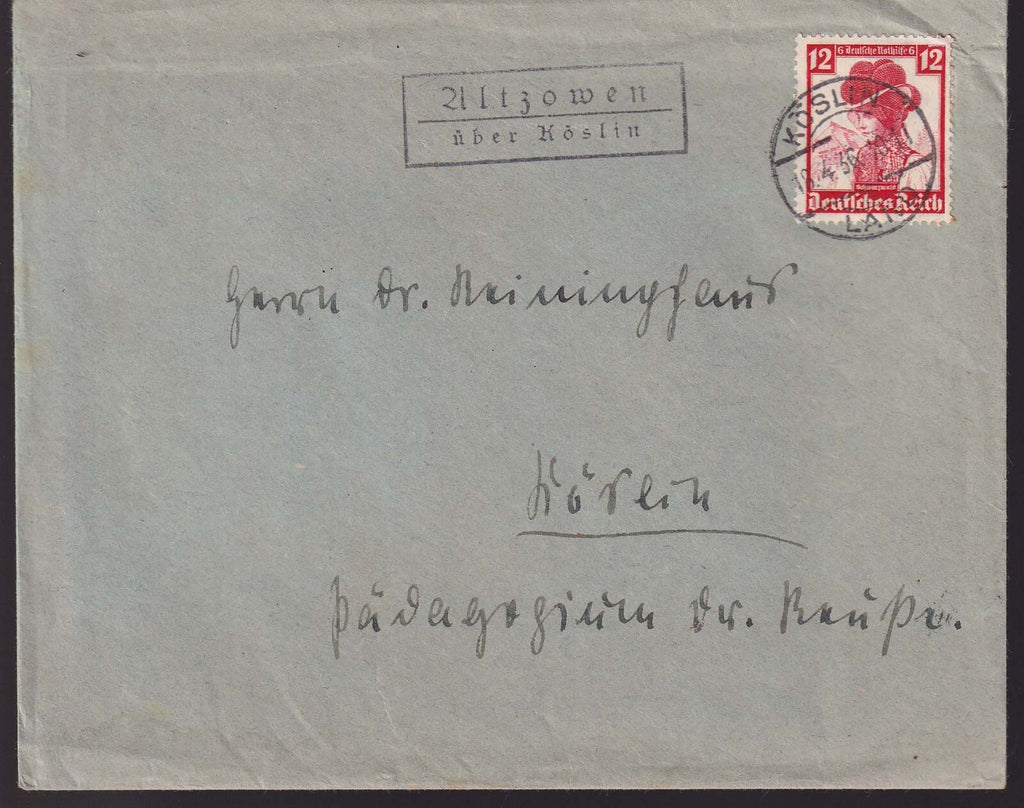 Altzowen
über Köslin
12 6 Deutsche Nothilfe 6 12
KÖSLIN
18.4.36
Schwarzwald
Deutsches Reich
Herrn Dr. Reininghaus
Köslin
Pädagogium Dr.